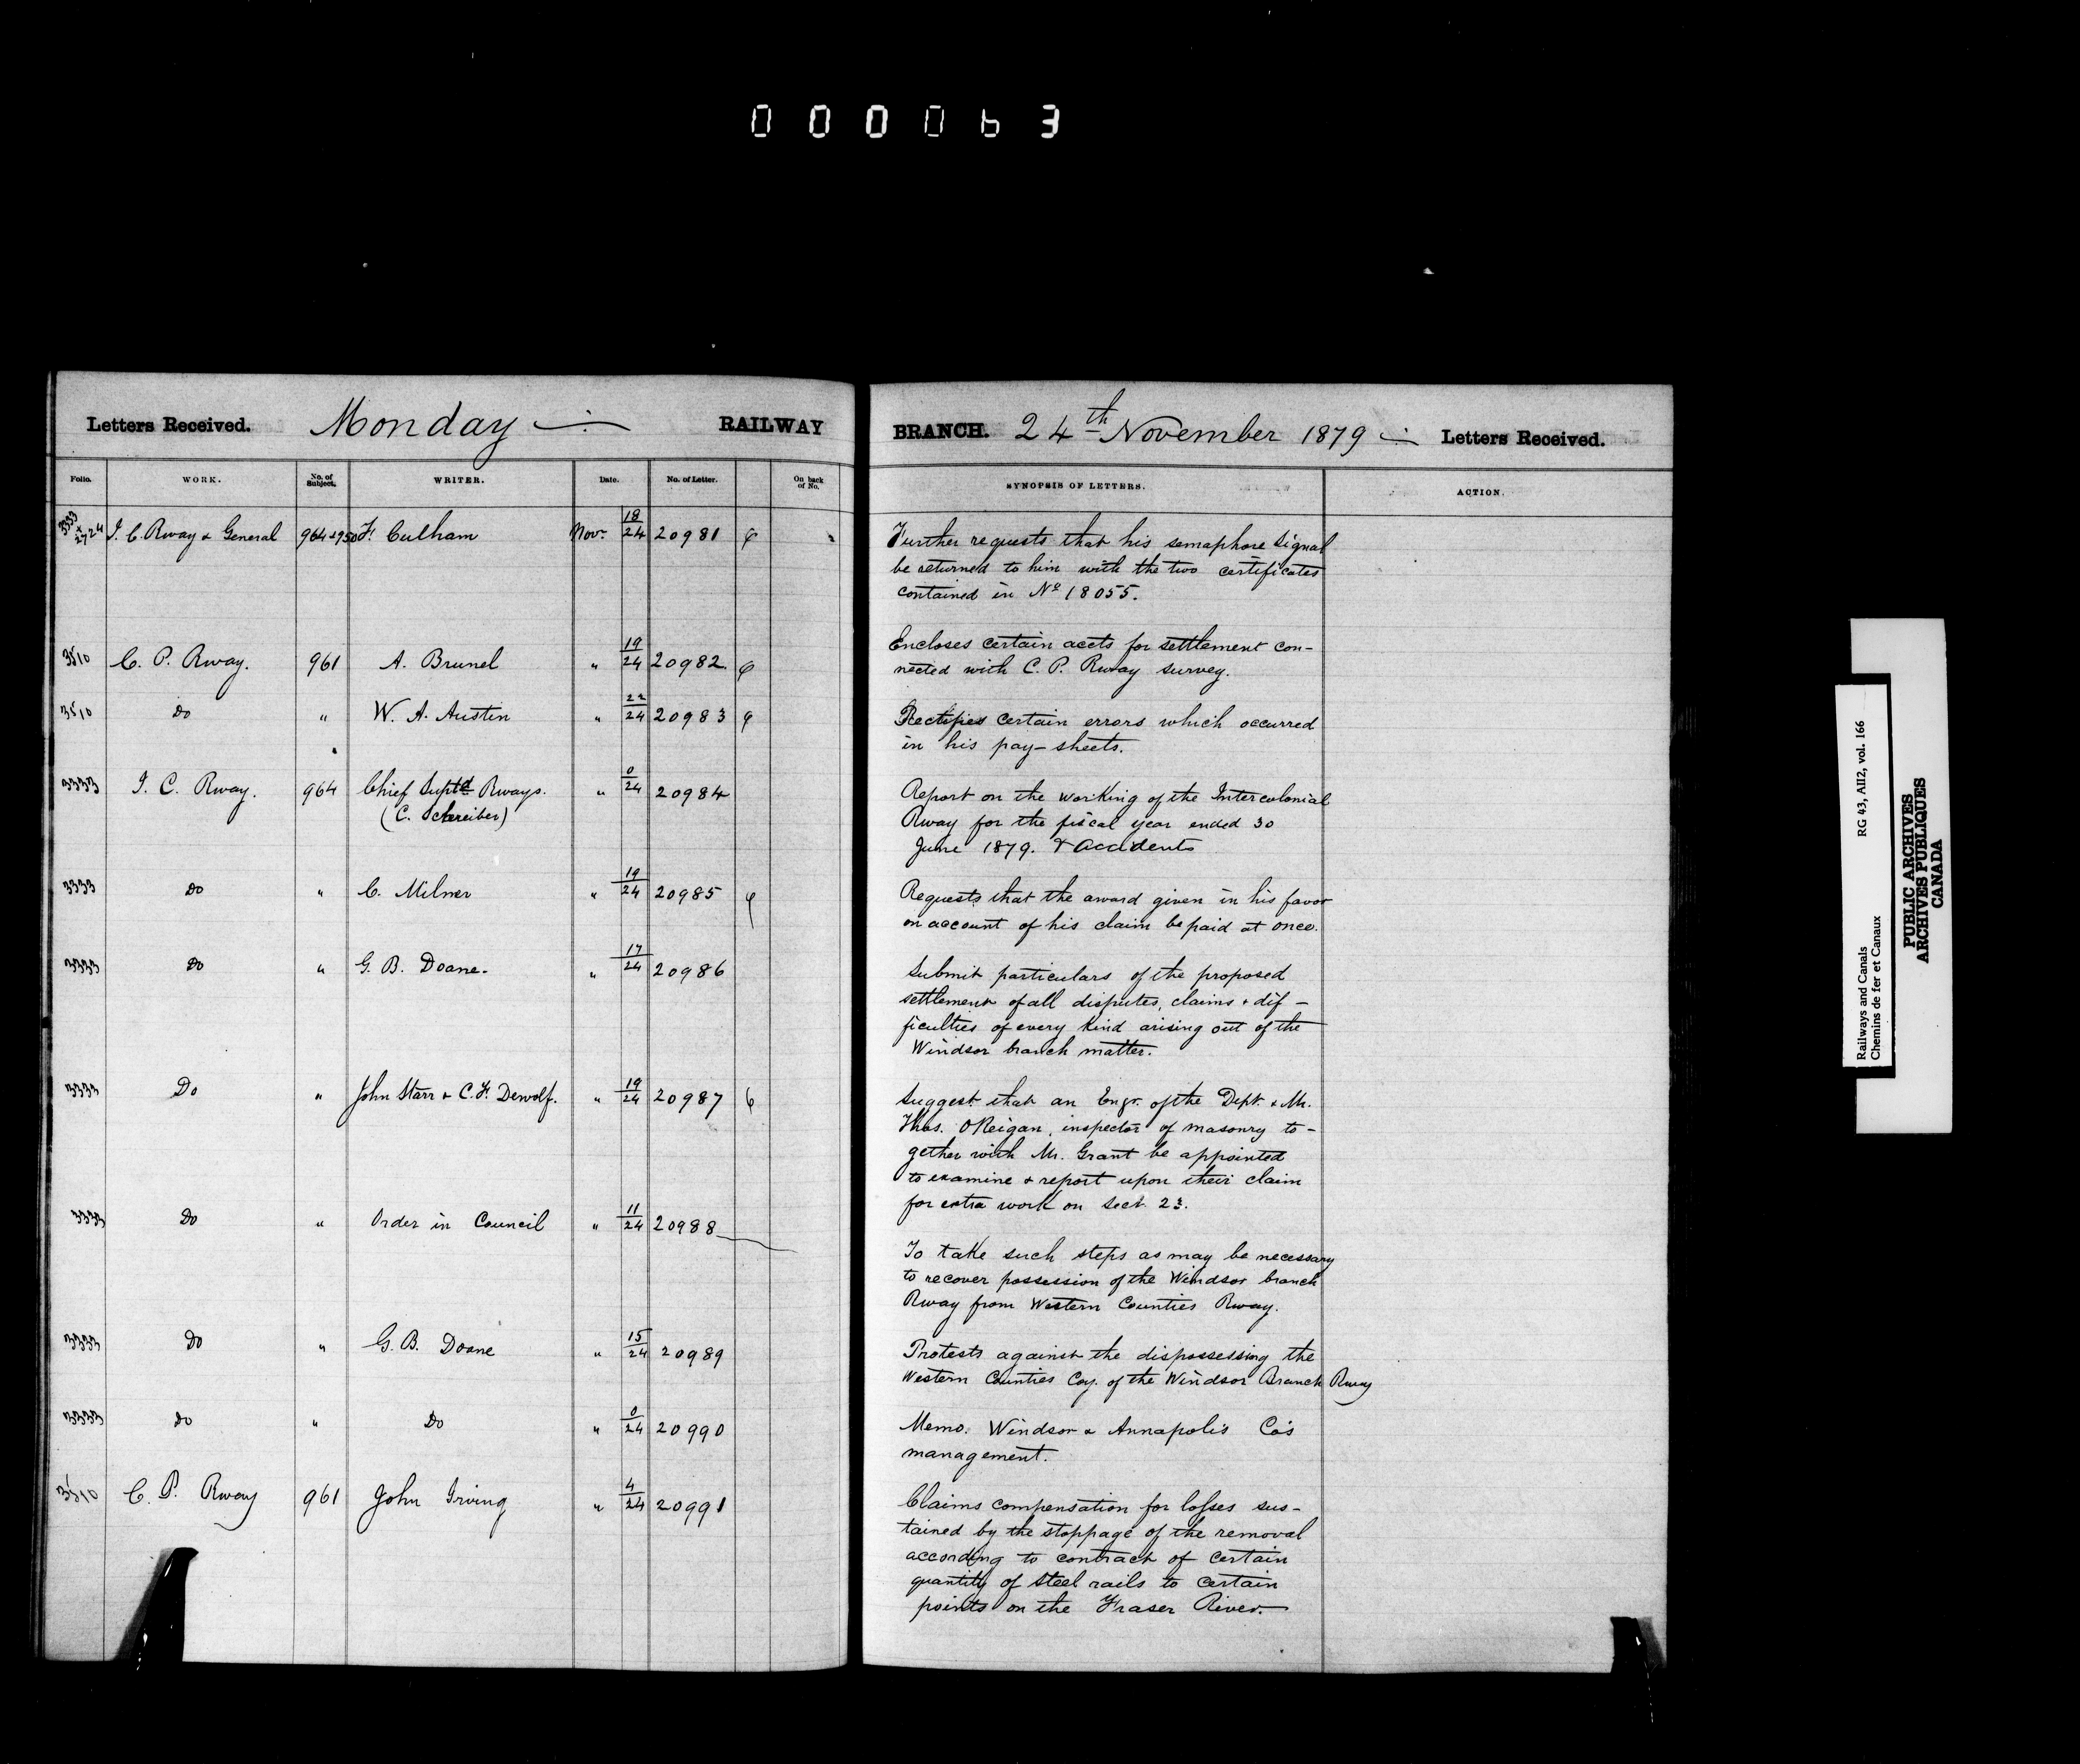 000063
Letters Received. Monday RAILWAY
Folio. WORK. No. of Subject. WRITER. Date. No. of Letter. On back of No.
3333 + 2724 I. C. Rway & General 964 + 950 F. Culham Nov. 18/24 20981
3510 C. P. Rway. 961 A. Brunel " 19/24 20982
3510 Do " W. A. Austin " 22/24 20983
3333 I. C. Rway. 964 Chief Suptd Rways. " 0/24 20984
(C. Schreiber)
3333 Do " C. Milner " 19/24 20985
3333 Do " G. B. Doane. " 17/24 20986
3333 Do " John Starr & C. F. Dewolf. " 19/24 20987
3333 Do " Order in Council " 11/24 20988
3333 Do " G. B. Doane " 15/24 20989
3333 Do " Do " 0/24 20990
3510 C. P. Rway 961 John Irving " 4/24 20991
BRANCH. 24th November 1879 Letters Received.
SYNOPSIS OF LETTERS. ACTION.
Further requests that his semaphore signal
be returned to him with the two certificates
contained in No 18055.
Encloses certain accts for settlement con-
nected with C. P. Rway survey.
Rectifies certain errors which occurred
in his pay-sheets.
Report on the working of the Intercolonial
Rway for the fiscal year ended 30
June 1879. & Accidents
Requests that the award given in his favor
on account of his claim be paid at once.
Submit particulars of the proposed
settlement of all disputes, claims + dif-
ficulties of every kind arising out of the
Windsor branch matter.
Suggest that an Engr. of the Dept. + Mr.
Thos. OReigan, inspector of masonry to-
gether with Mr. Grant be appointed
to examine + report upon their claim
for extra work on Sect. 23.
To take such steps as may be necessary
to recover possession of the Windsor branch
Rway from Western Counties Rway.
Protests against the dispossessing the
Western Counties Coy. of the Windsor Branch Rway
Memo. Windsor & Annapolis Co's
management.
Claims compensation for losses sus-
tained by the stoppage of the removal
according to contract of certain
quantity of steel rails to certain
points on the Fraser River.
Railways and Canals RG 43, AII2, vol. 166
Chemins de fer et Canaux
PUBLIC ARCHIVES
ARCHIVES PUBLIQUES
CANADA